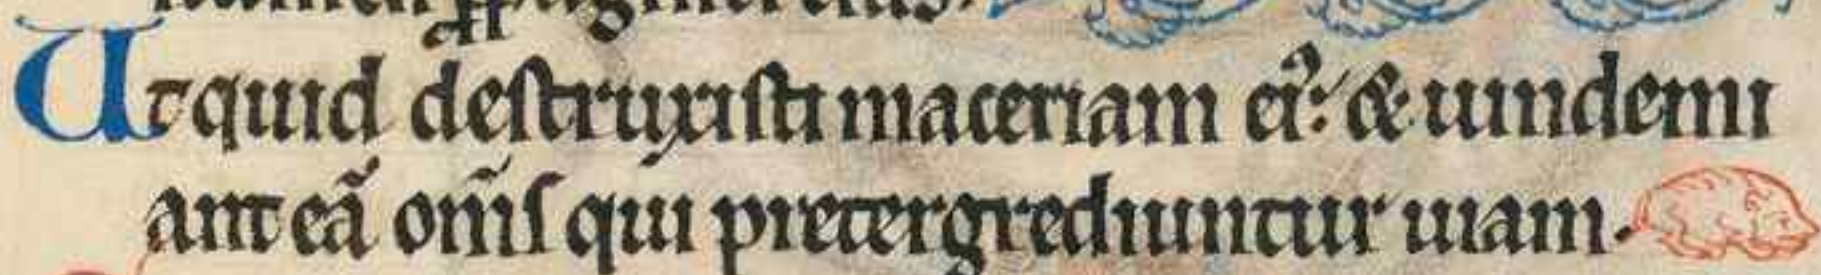 Utquid destruxisti maceriam ei᷒: & uindemi
ant eã om̃is qui pretergrediuntur uiam.